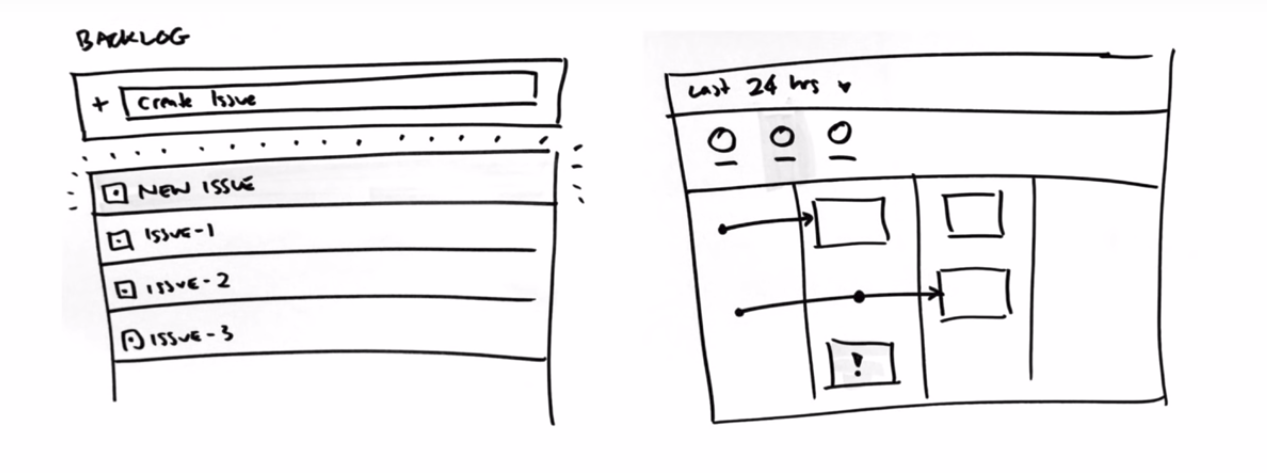 BACKLOG
+ Create Issue
NEW ISSUE
ISSUE-1
ISSUE-2
ISSUE-3
Last 24 hrs
!